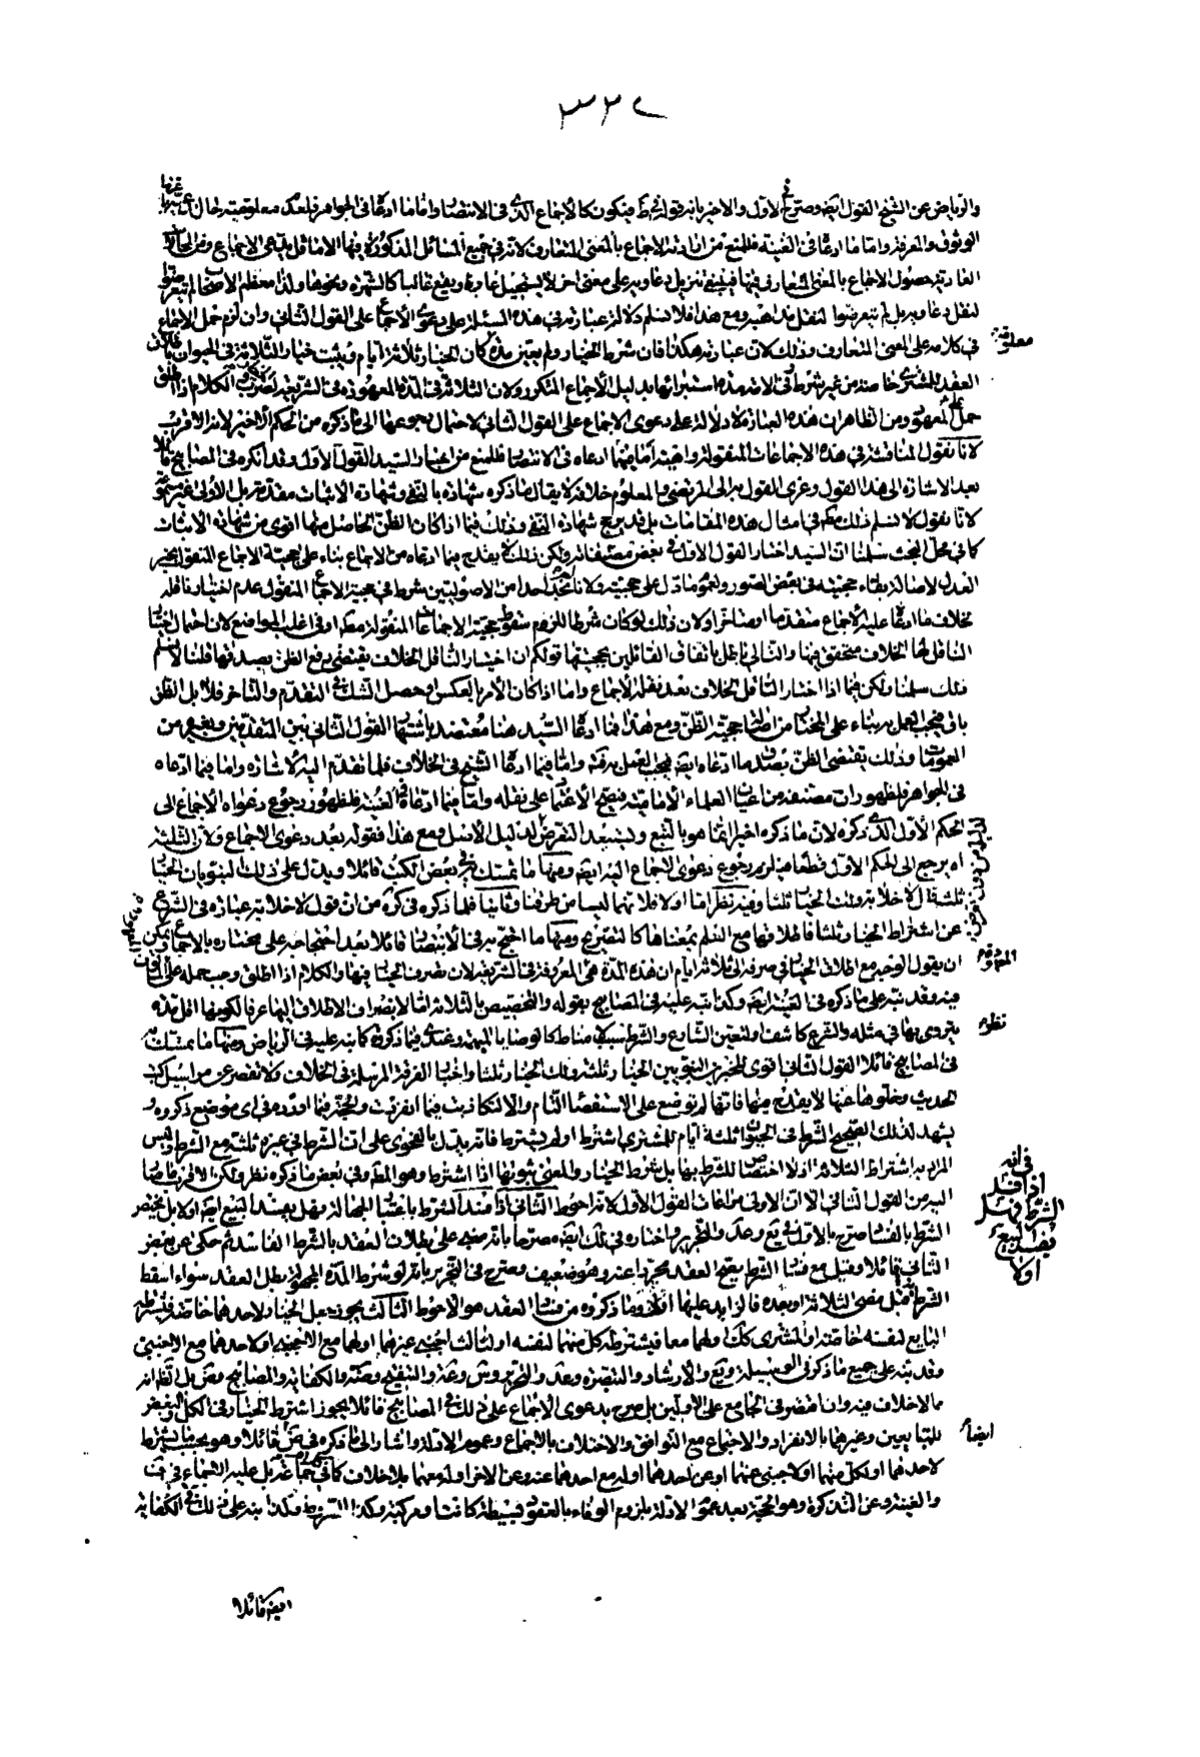 ٣٢٧
والرياض عن الشيخ القول ايضا وصرح في الاول والاخير بانه قوله في ط فيكون كالاجماع الذى فى الانتصار واما ما ادعا فى الجواهر فلعدم معلومية حال
الوثوق والمعرفة واما ما ادعا فى الغنية فللمنع من ارادته الاجماع بالمعنى المتعارف لانه فى جميع المسائل المذكورة فيها الا ما قل يدعى الاجماع ومن
العادة حصول الاجماع بالمعنى المتعارف فيها فينبغى تنزيل دعاويه على معنى اخر لا يستحيل عادة ويقع غالبا كالشهرة ونحوها ولذا معظم الاصحاب لم يتعرضوا
لنقل دعاويه بل لم يتعرضوا لنقل مذاهبه ومع هذا فلا نسلم دلالة عبارته فى هذه المسئلة على دعوى الاجماع على القول الثانى وان لزم حمل الاجماع
فى كلامه على المعنى المتعارف وذلك لان عبارته هكذا فان شرط الخيار ولم يعين مدة كان الخيار ثلاثة ايام ويثبت خيار الثلاثة فى الحيوان
العقد للمشترى خاصة من غير شرط فى الامة مدة استبرائها بدليل الاجماع المتكرر ولان الثلاثة فى المدة المعهودة فى الشريعة لضرب الكلام اذا اطلق
حمل على المعهود ومن الظاهر ان هذه العبارة لا دلالة على دعوى الاجماع على القول الثانى لاحتمال رجوعها الى ما ذكره من الحكم الاخير لانه الاقرب
لانا نقول المناقشة فى هذه الاجماعات المنقولة واهية اما فيما ادعاه فى الانتصار فللمنع من اختيار السيد القول الاول وقد انكره فى المصابيح قائلا
بعد الاشارة الى هذا القول وعزى القول به الى المرتضى والمعلوم خلافه لا يقال ما ذكره شهادة بالنفى وشهادة الاثبات مقدمة بل الاولى غير مسموعة
لانا نقول لا نسلم ذلك فى امثال هذه المقامات بل قد يرجح شهادة النفى وذلك فيما اذا كان الظن الحاصل منها اقوى من شهادة الاثبات
كما فى محل البحث سلمنا ان السيد اختار القول الاول فى بعض مصنفاته ولكن ذلك لا يقدح فيما ادعاه من الاجماع بناء على حجية الاجماع المنقول بخبر
العدل لاصالة بقاء حجيته فى بعض الصور ولعموم ما دل على حجيته ولانا لم نجد احدا من الاصوليين شرط فى حجية الاجماع المنقول عدم اختيار ناقله
بخلاف ما ادعا عليه الاجماع متقدما او متاخرا ولان ذلك لو كان شرطا للزم سقوط حجية الاجماعات المنقولة معظمها او فى اغلب المواضع لان احتمال اختيار
الناقل لها الخلاف متحقق فيها والتالى باطل باتفاق القائلين بحجيتها قولكم ان اختيار الناقل الخلاف يقتضى رفع الظن بصدقها قلنا لا نسلم
ذلك سلمنا ولكن فيما اذا اختار الناقل الخلاف بعد نقله الاجماع واما اذا كان الامر بالعكس او حصل الشك فى التقدم والتاخر فلا بل الظن
باق فيجب العمل به بناء على المختار من اصالة حجية الظن ومع هذا فما ادعا السيد هنا معتضد باشتهار القول الثانى بين المتقدمين وبغيره من
المويدات وذلك يقتضى الظن بصدق ما ادعاه ايضا فيجب العمل به واما فيما ادعا الشيخ فى الخلاف فلما تقدم اليه الاشارة واما فيما ادعاه
فى الجواهر فلظهور ان مصنفه من اعيان العلماء الامامية فيصح الاعتماد على نقله واما فيما ادعاه فى الغنية فلظهور رجوع دعواه الاجماع الى
الحكم الاول الذى ذكره لان ما ذكره اخيرا انما هو بالتبع ويستبعد التعرض لدليل الاصل ومع هذا فقوله بعد دعوى الاجماع ولان الثلثة
اه يرجع الى الحكم الاول قطعا فيلزم رجوع دعوى الاجماع اليه ايضا ومنها ما تمسك به فى بعض الكتب قائلا ويدل على ذلك النبويان الخيار
ثلثة قال لا خلابة ولك الخيار ثلثا وفيه نظر اما اولا فلانهما ليسا من طرقنا وثانيا فلما ذكره فى كرة من ان قول لا خلابة عبارة فى الشرع
عن اشتراط الخيار ثلثا فاطلاقها مع العلم بمعناها كالتصريح ومنها ما احتج به فى الانتصار قائلا بعد احتجاجه على مختاره بالاجماع ويمكن
ان يقول الوجه مع اطلاق الخيار فى صرفه الى ثلاثة ايام ان هذه المدة هى المعروفة فى الشريعة لان يضرب الخيار فيها والكلام اذا اطلق وجب حمله على المألوف
فيه وقد نبه على ما ذكره فى الغنية ايضا وكذا نبه عليه فى المصابيح بقوله والتخصيص بالثلاثة اما لانصراف الاطلاق اليها عرفا لكونها اقل مدة
يتروى بها فى مثله والشرع كاشف او لتعيين الشارع والشرط سبب لا مناط كالوصايا المبهمة وعندى فيما ذكره كما نبه عليه فى الرياض ومنها ما تمسك به
فى المصابيح قائلا القول الثانى اقوى للخبرين النبويين الخيار ثلثة ولك الخيار ثلثا واخبار الفرقة المرسلة فى الخلاف ولا تقصر عن مراسيل كتب
الحديث وخلوها عنها لا يقدح فيها فانها لم توضع على الاستقصاء التام والا لتكاذبت فيما انفردت والحجة فيما اورده فى اى موضع ذكروه و
يشهد لذلك الصحيح الشرط فى الحيوان ثلثة ايام للمشترى اشترط او لم يشترط فانه يدل بالفحوى على ان الشرط فى غيره ثلثة مع الشرط وليس
المراد به اشتراط الثلاثة اذ لا اختصاص للشرط بها بل شرط الخيار والمعنى ثبوتها اذا اشترط وهو المطلوب وفى بعض ما ذكره نظر ولكن الاقرب ما صار
اليه من القول الثانى الا ان الاولى مراعات القول الاول لانه احوط الثانى اذا فسد الشرط باعتبار الجهالة فهل يفسد البيع ايضا او لا بل يختص
الشرط بالفساد صرح بالاول فى يع وعد والتحرير واختاره فى لك ايضا مصرحا بانه مبنى على بطلان العقد بالشرط الفاسد ثم حكى عن بعض
الثانى قائلا وقيل مع فساد الشرط يصح العقد مجردا عنه وهو ضعيف وصرح فى التحرير بانه لو شرط المدة المجهولة بطل العقد سواء اسقط
الشرط قبل مضى الثلاثة او بعده فالزايد عليها اولا وما ذكروه من فساد العقد هو الاحوط الثالث يجوز جعل الخيار لاحدهما خاصة فيشترطه
البايع لنفسه خاصة او المشترى كذلك ولهما معا فيشترط كل منهما لنفسه او لثالث اجنبى غيرهما او لهما مع الاجنبى او لاحدهما مع الاجنبى
وقد نبه على جميع ما ذكر فى الوسيلة ويع والارشاد والتبصرة وعد والتحرير وس وعه والتنقيح وضه والكفاية والمصابيح وض بل الظاهر انه
مما لا خلاف فيه وان اقتصر فى الجامع على الاولين بل صرح بدعوى الاجماع على ذلك فى المصابيح قائلا يجوز اشتراط الخيار فى الكل والبعض
للمتبايعين وغيرهما بالانفراد والاجتماع مع التوافق والاختلاف بالاجماع وعموم الادلة واشار الى ما ذكره فى ض قائلا وهو بحسب ما يشترط
لاحدهما او لكل منهما او لاجنبى عنهما او عن احدهما او له مع احدهما عنه وعن الاخر او له معهما بلا خلاف كما فى جماعة بل عليه الاجماع فى
والغنية وعن التذكرة وهو الحجة بعد عموم الادلة بلزوم الوفاء بالعقود بسيطة كانت او مركبة وكذا الشروط وكذا نبه على ذلك فى الكفاية
معلومية
نظر
فى انه اذا فسد الشرط فهل يفسد البيع او لا
ايضا
ايضا قائلا